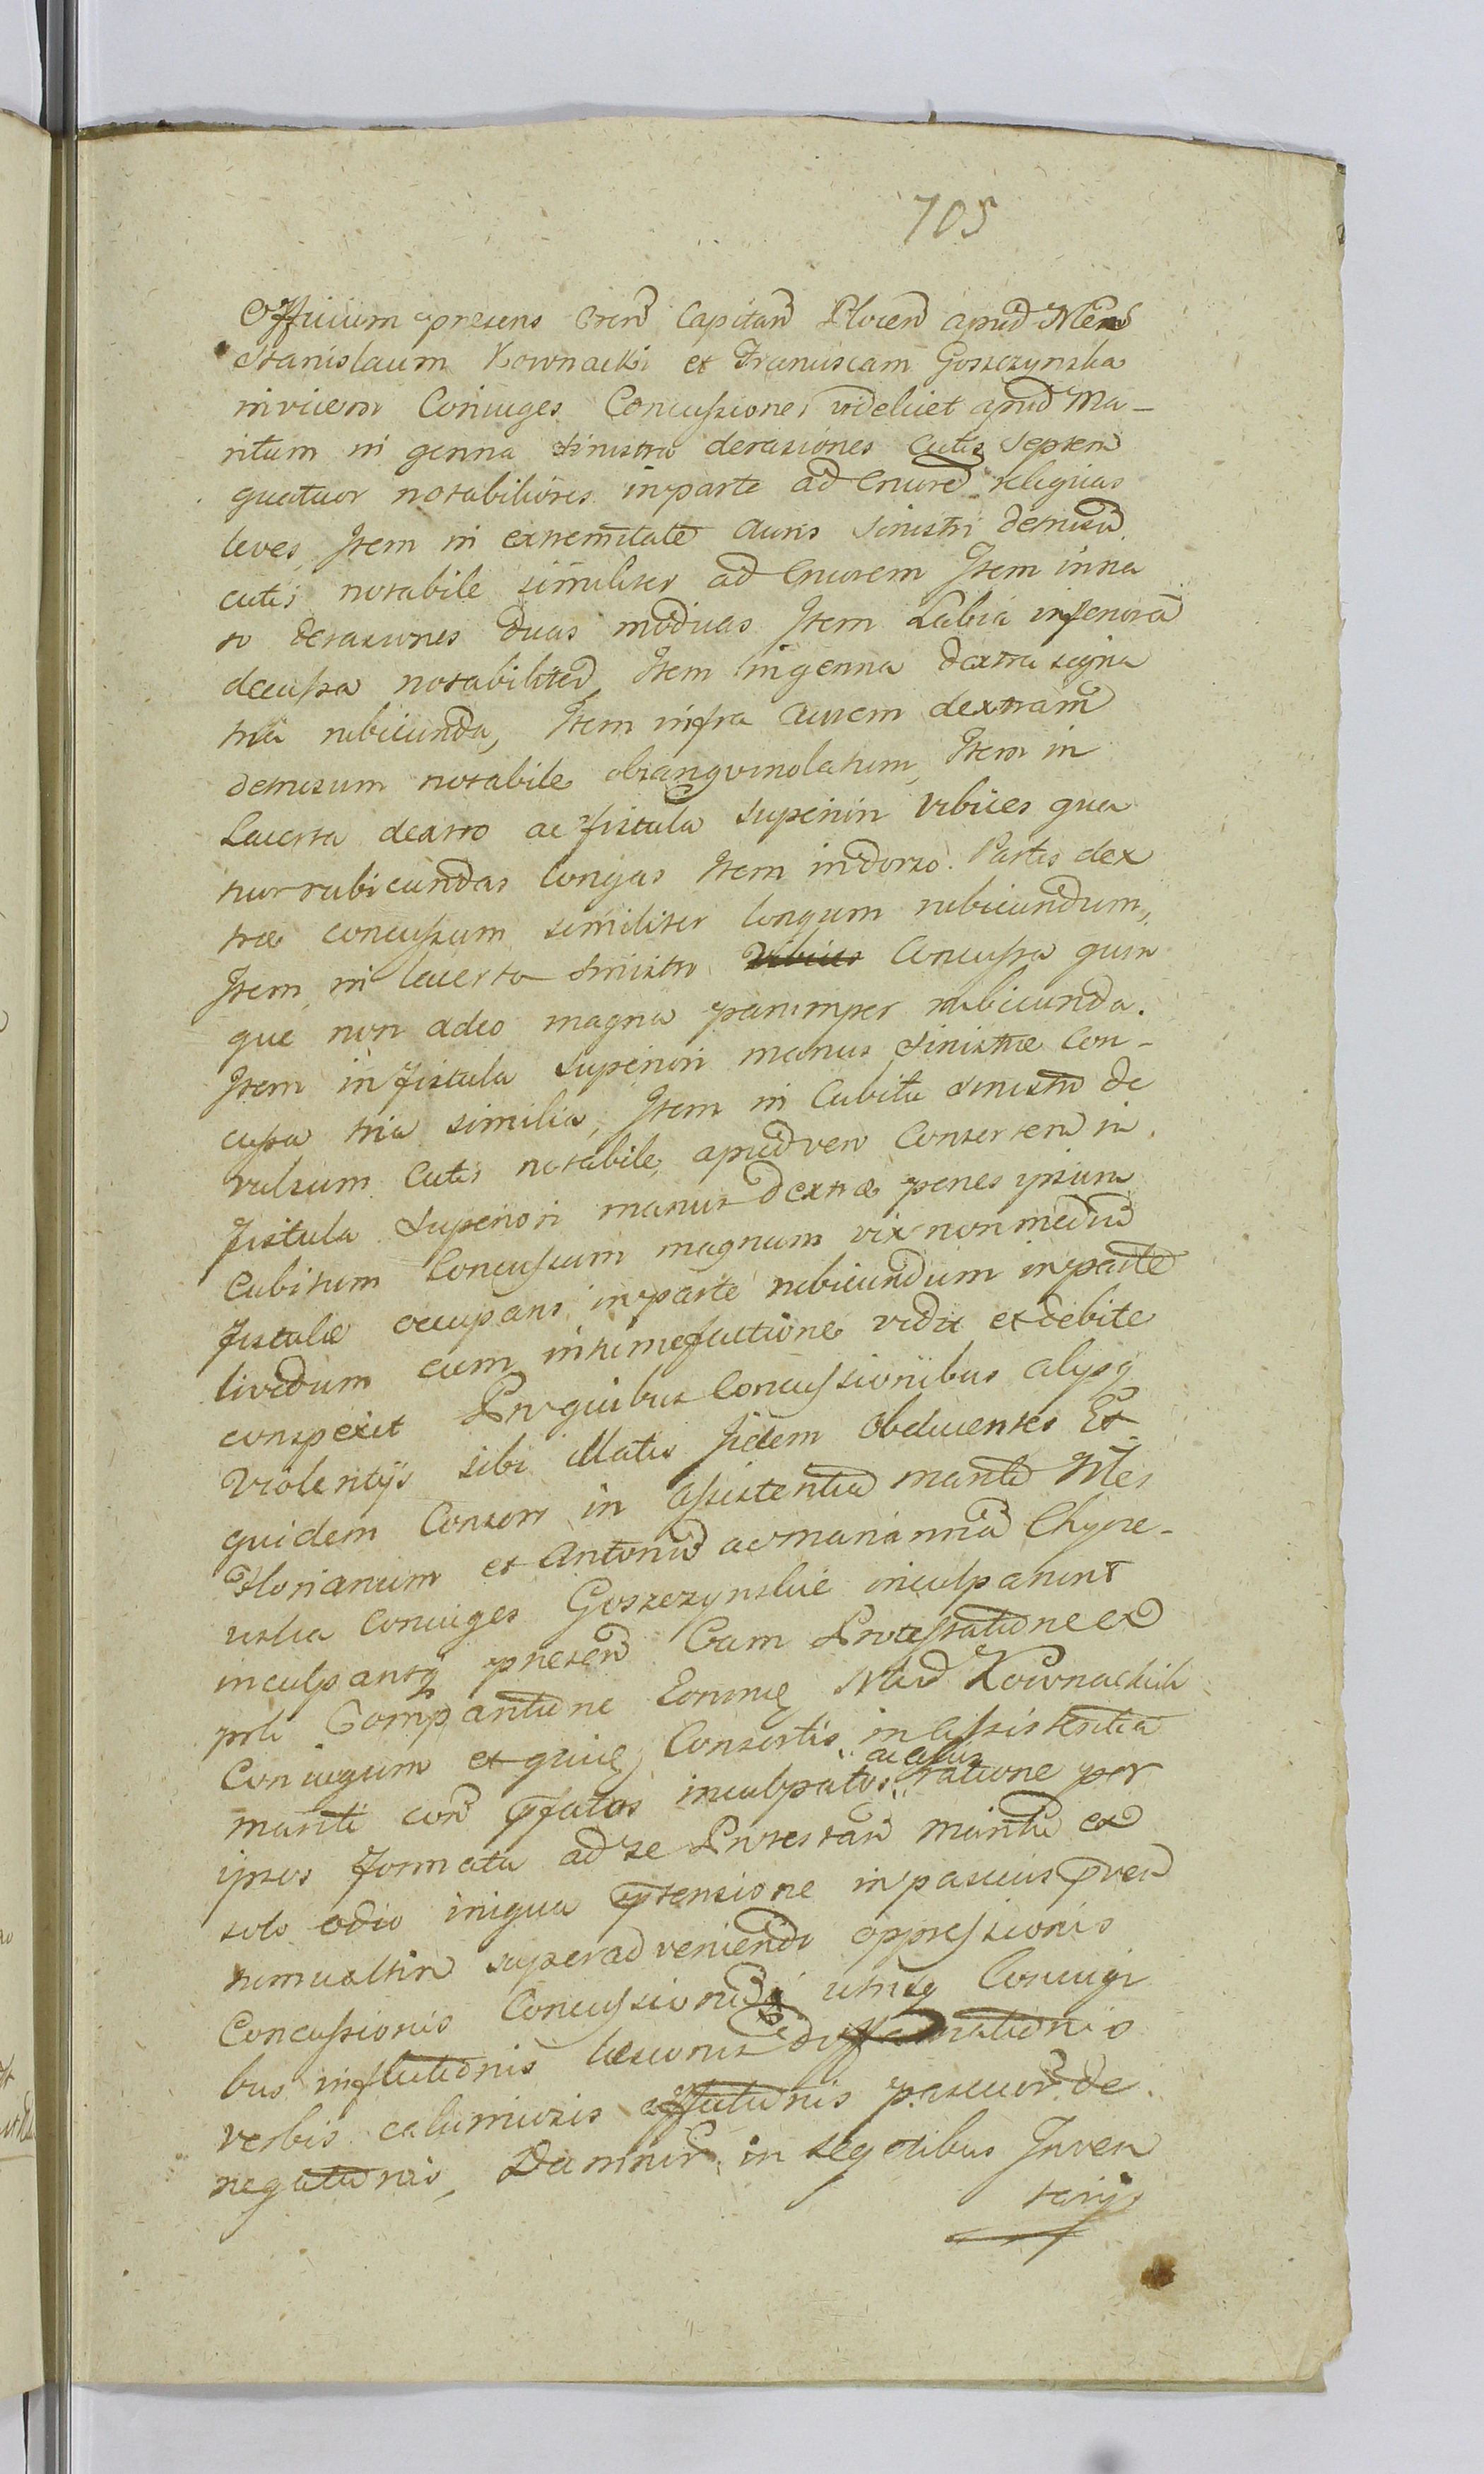 705
Officium presens Cren Capitan Plocen apud Mens
Stanislaum Kownacki et Franciscam Goszczynska
invicem Coniuges Concussiones videlicet apud Ma-
ritum in genna sinistra derasiones Cutis Septem
quatuor notabiliores in parte ad Cruore reliquas
leves, Item in extremitate auris sinistri demisum
cutis notabile similiter ad Cruorem Item in na
so derasiones duas modicas Item Labia inferiora
decussa notabiliter, Item in genna dextra signa
tria rubicunda, Item infra aurem dextram
demisum notabile obsangvinolatum, Item in
Lacerta dextro ac fistula superiori vibices qua
tuor rubicundas longas Item in dorso Partis dex
træ concussum similiter longum rubicundum,
Item in lacerta sinistro Vibices Concussa quin
que non adeo magna parumper rubicunda.
Item in fistula superiori manus sinistræ Con-
cussa tria similia, Item in Cubito sinistro de
vulsum Cutis notabile, apud vero Consortem in
fistula superiori manus dextræ penes ipsum
Cubitum Concussum magnum vix non mediu
fistulæ occupans in parte rubicundum in parte
lividum cum intumefactione vidit et debite
conspexit Pro quibus Concussionibus alysq
violentijs sibi illatis fidem obducentes Et
quidem Consors in assistentia mariti Mles
Florianum et Antoniu ac Mariannam Chyze-
wska Coniuges Goszczynskie inculparunt
inculpantq presen Cum Protestatione ex
prti Comparitione Eorunq Mlid Kownackich
Coniugum et quiq Consortis in assistentia
mariti con pfatos inculpatos ac eius ratione per
ipsos formata ad se Protestan mariti ex
solo odio iniqua ptensione in pascuis pven
rumualtin superadveniendi oppressionis
Concussionis Concussionu utrisq Coniugi
bus inflictionis læsionis diffamationis
verbis calumiosis affectionis pascuor de
negationis, Damnor in segetibus Inven
tarijs